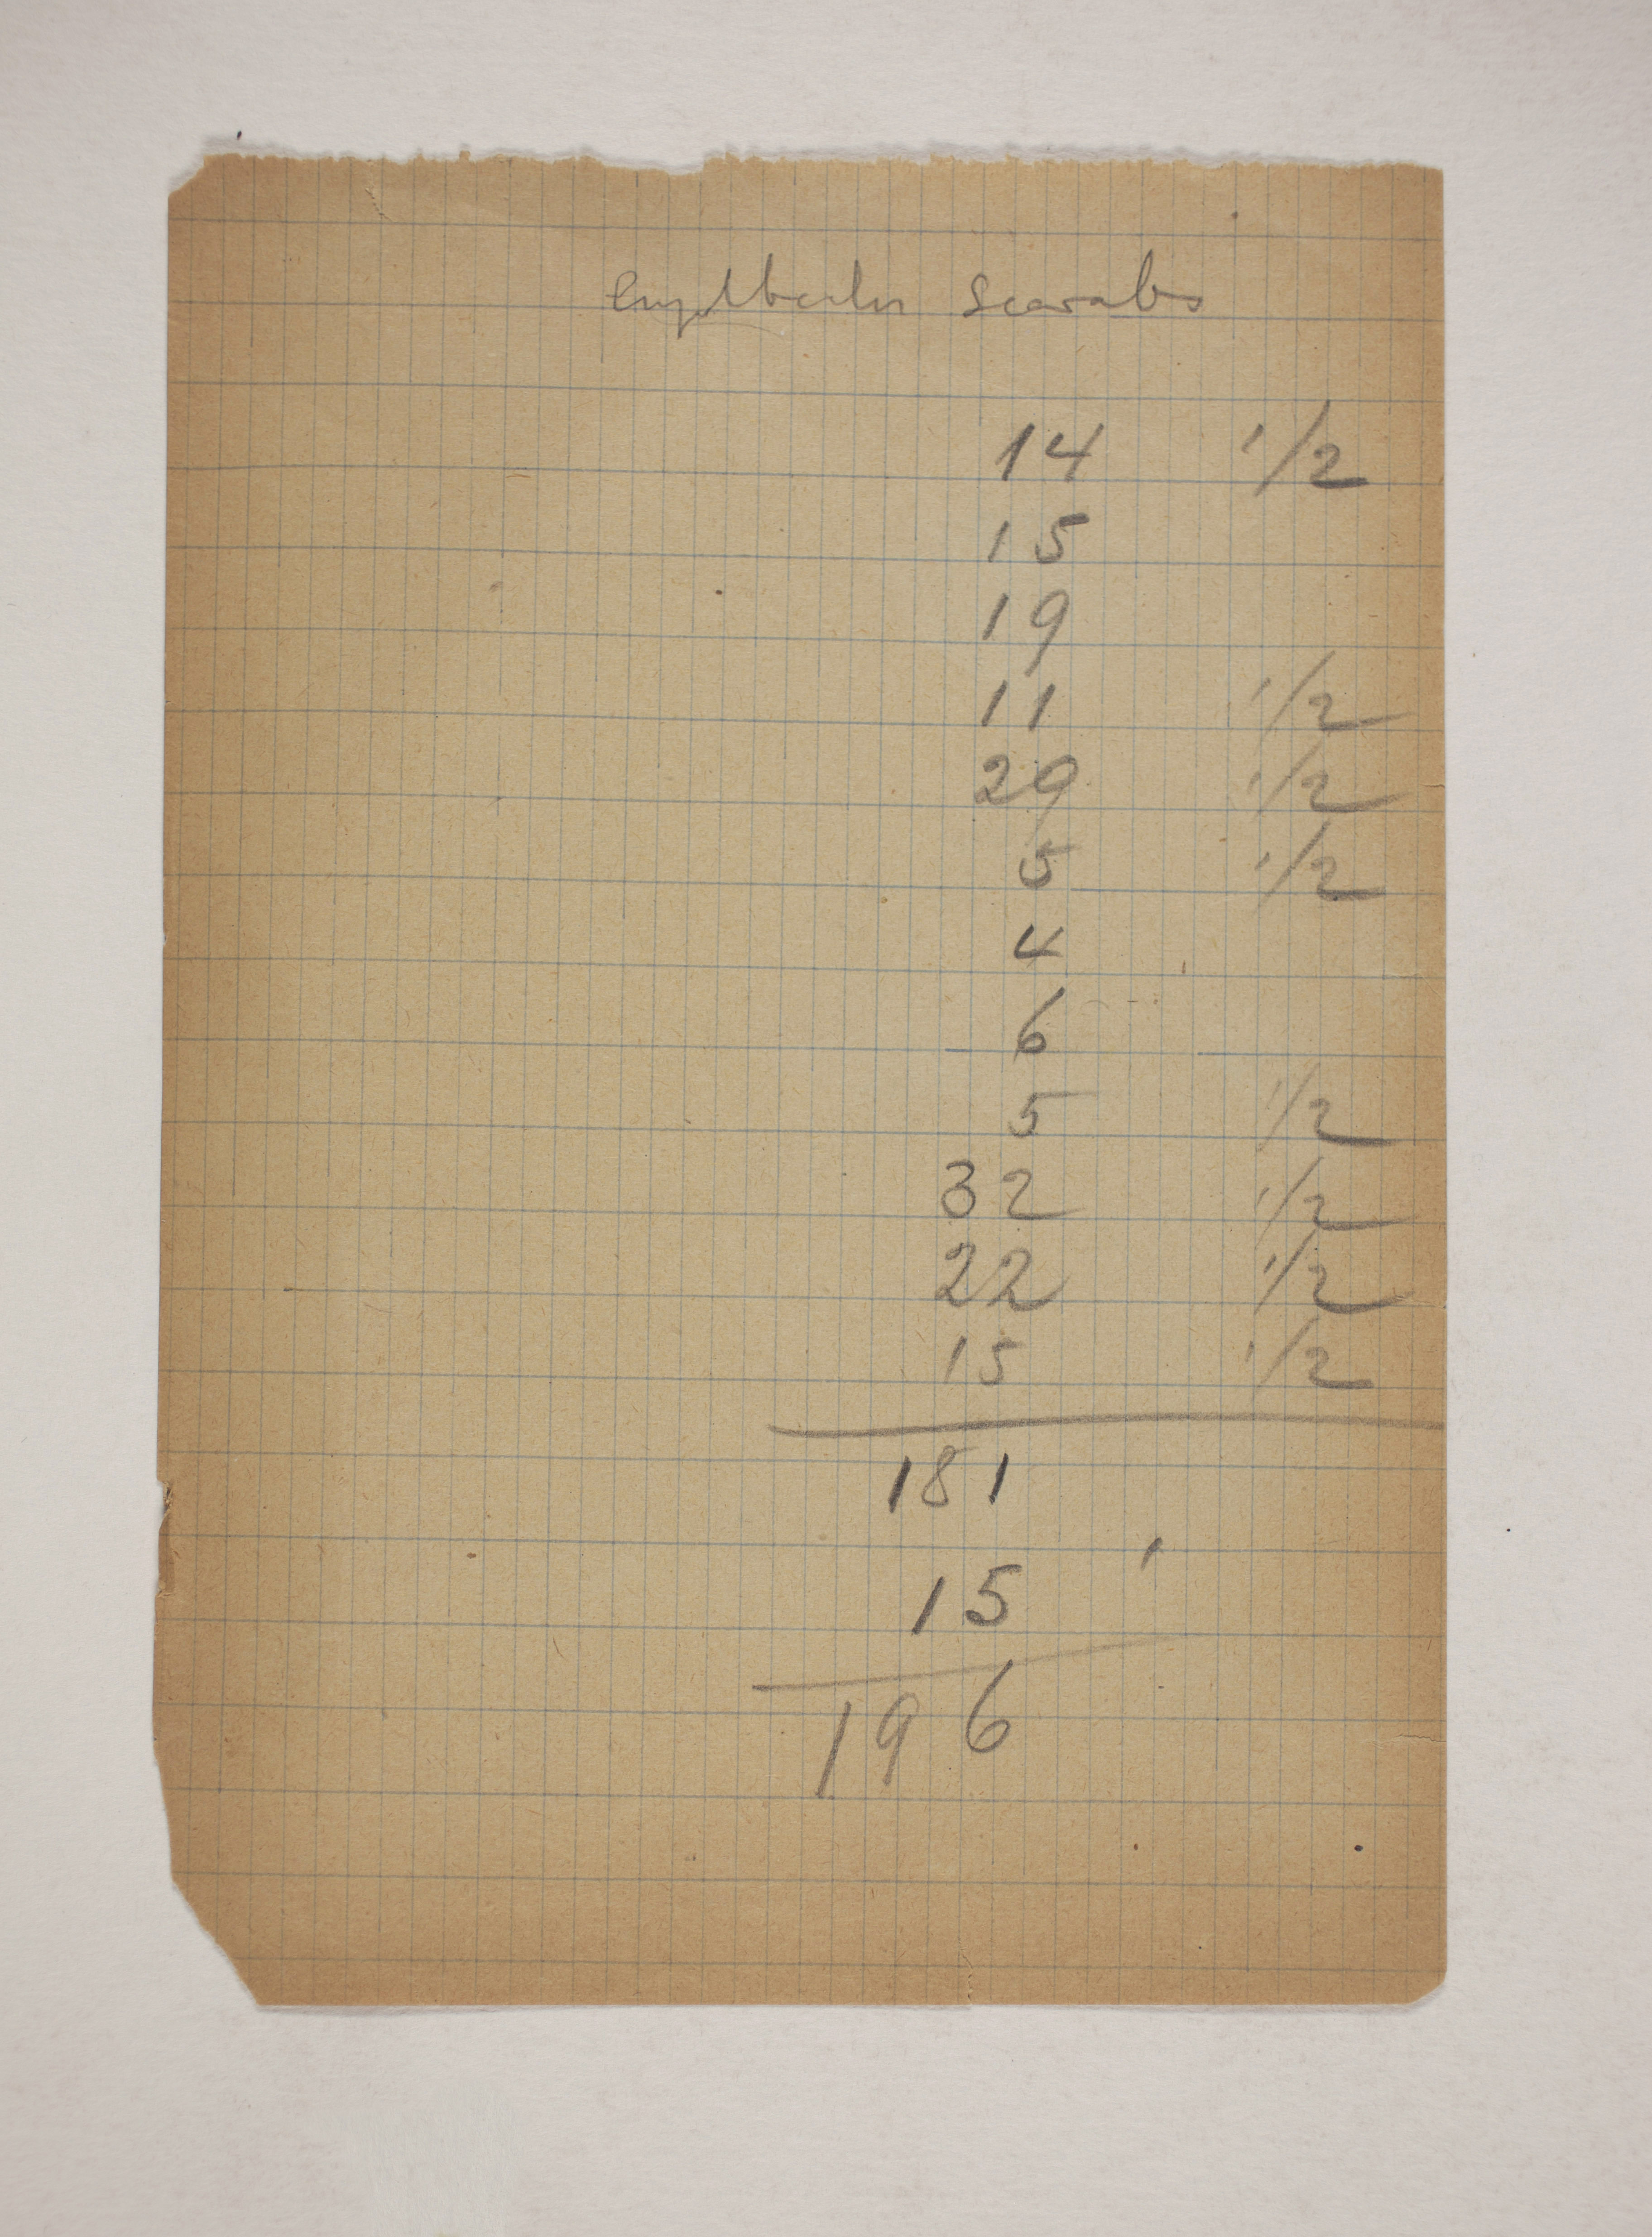 Scarabs
14 1/2
15
19
11 1/2
29 1/2
5 1/2
4
6
5 1/2
32 1/2
22 1/2
15 1/2
181
15
196